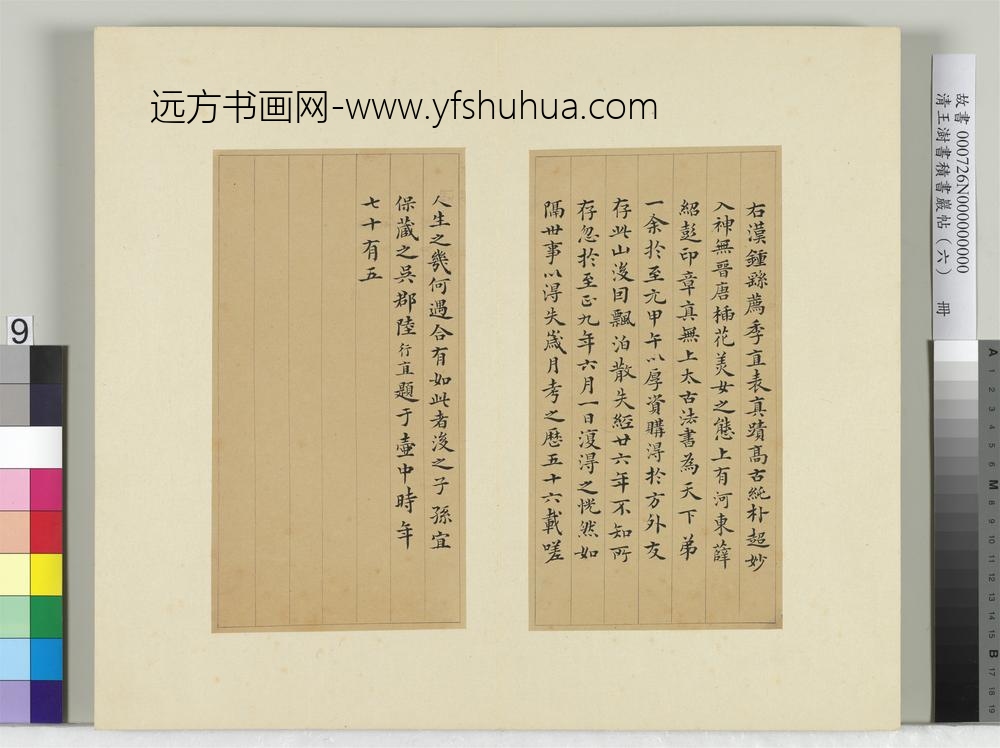 远方书画网-www.yfshuhua.com
右漢鍾繇薦季直表真蹟高古純朴超妙
入神無晉唐插花美女之態上有河東薛
紹彭印章真無上太古法書為天下弟
一余於至元甲午以厚資購得於方外友
存此山後因飄泊散失經廿六年不知所
存忽於至正九年六月一日復得之恍然如
隔世事以得失歲月考之歷五十六載嗟
人生之幾何遇合有如此者後之子孫宜
保藏之吳郡陸行直題于壺中時年
七十有五
故書 000726N000000000
清王澍書積書巖帖（六） 冊
9
A 1 2 3 4 5 6 M 8 9 10 11 12 13 14 15 B 17 18 19